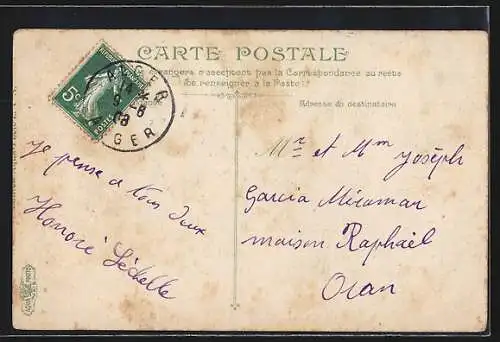 CARTE POSTALE
étrangers n'acceptent pas la Correspondance au recto
se renseigner à la Poste
Adresse du destinataire
5c
POSTES
ALGER
8
08
ALGER
Je pense a Vous deux
Honoré Léchelle
Mr et Mme Joseph
Garcia Miramar
maison Raphaël
Oran